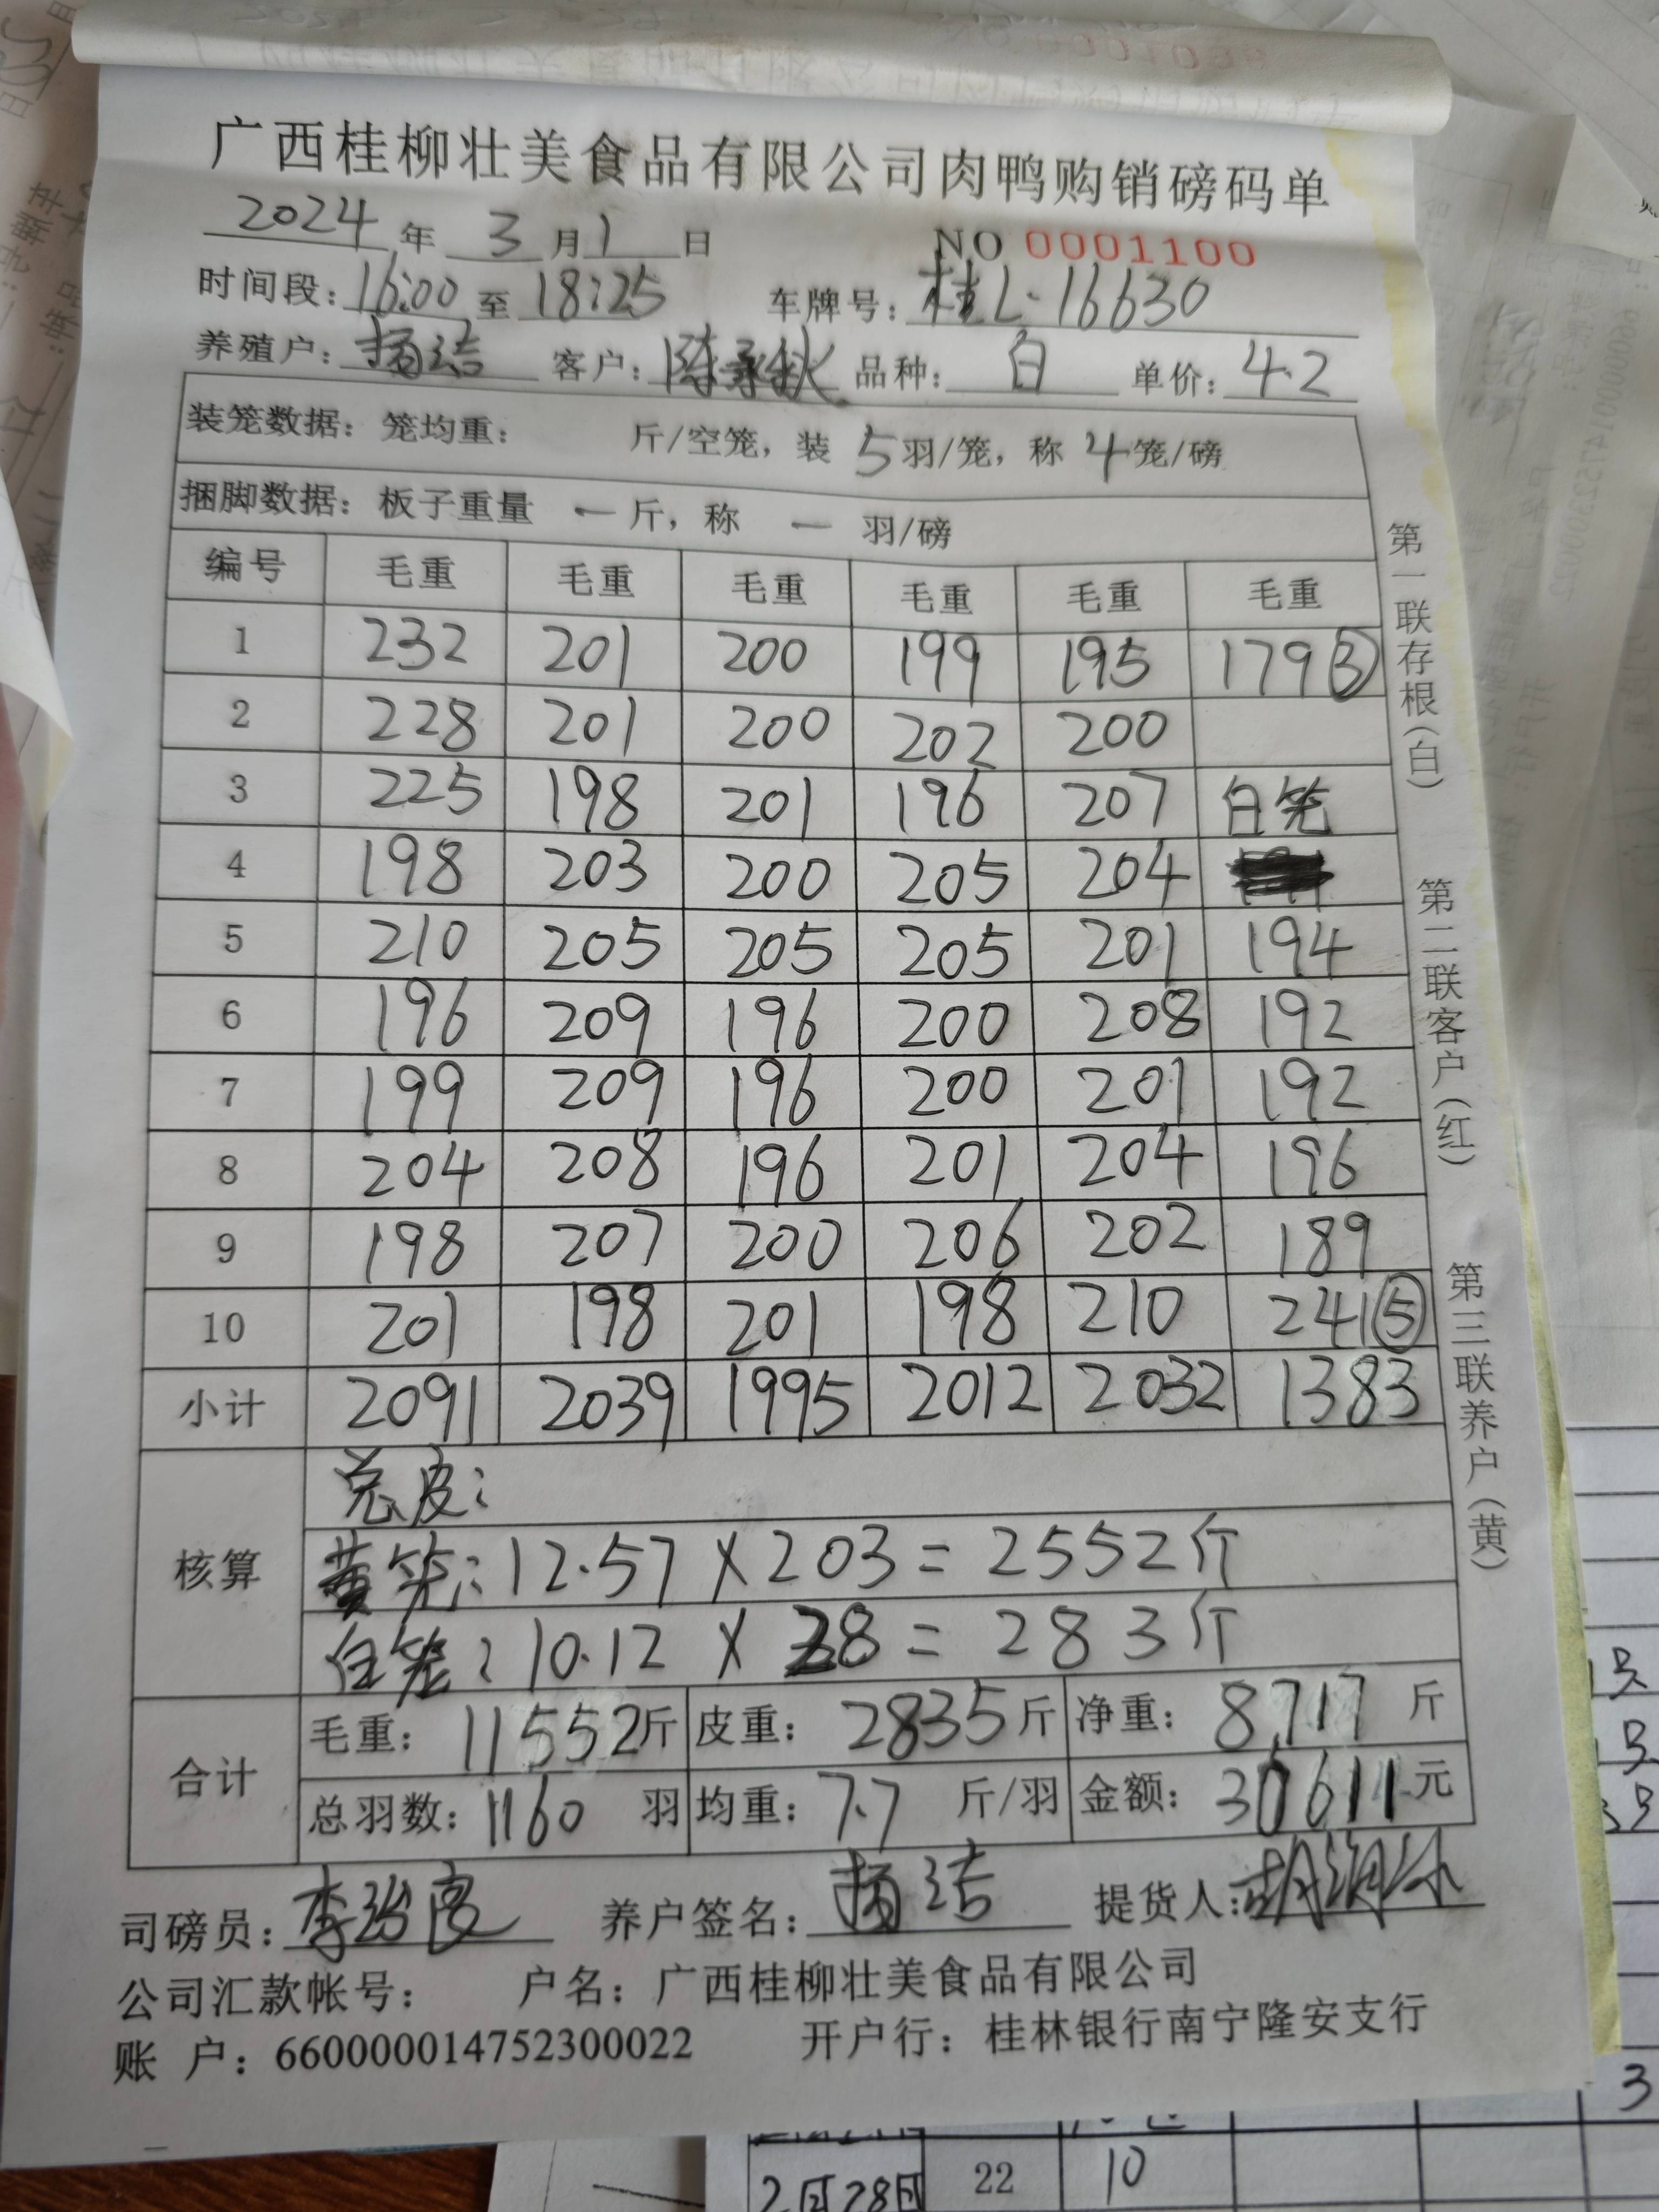 广西桂柳壮美食品有限公司肉鸭购销磅码单
2024 年 3 月 1 日 NO 0001100
时间段: 16:00 至 18:25 车牌号: 桂L·16630
养殖户: 杨洁 客户: 陈秋 品种: 白 单价: 4.2
装笼数据: 笼均重: 斤/空笼, 装 5 羽/笼, 称 4 笼/磅
捆脚数据: 板子重量 — 斤, 称 — 羽/磅
编号 毛重 毛重 毛重 毛重 毛重 毛重
1 232 201 200 199 195 179 ③
2 228 201 200 202 200
3 225 198 201 196 207 白笼
4 198 203 200 205 204
5 210 205 205 205 201 194
6 196 209 196 200 208 192
7 199 209 196 200 201 192
8 204 208 196 201 204 196
9 198 207 200 206 202 189
10 201 198 201 198 210 241 ⑤
小计 2091 2039 1995 2012 2032 1383
核算 总皮:
黄笼: 12.57 X 203 = 2552斤
白笼: 10.12 X 28 = 283斤
合计 毛重: 11552 斤 皮重: 2835 斤 净重: 8717 斤
总羽数: 1160 羽 均重: 7.7 斤/羽 金额: 36611 元
司磅员: 李 养户签名: 杨洁 提货人: 胡
公司汇款帐号: 户名: 广西桂柳壮美食品有限公司
账 户: 660000014752300022 开户行: 桂林银行南宁隆安支行
第一联存根(白) 第二联客户(红) 第三联养户(黄)
2月28日 22 10
3